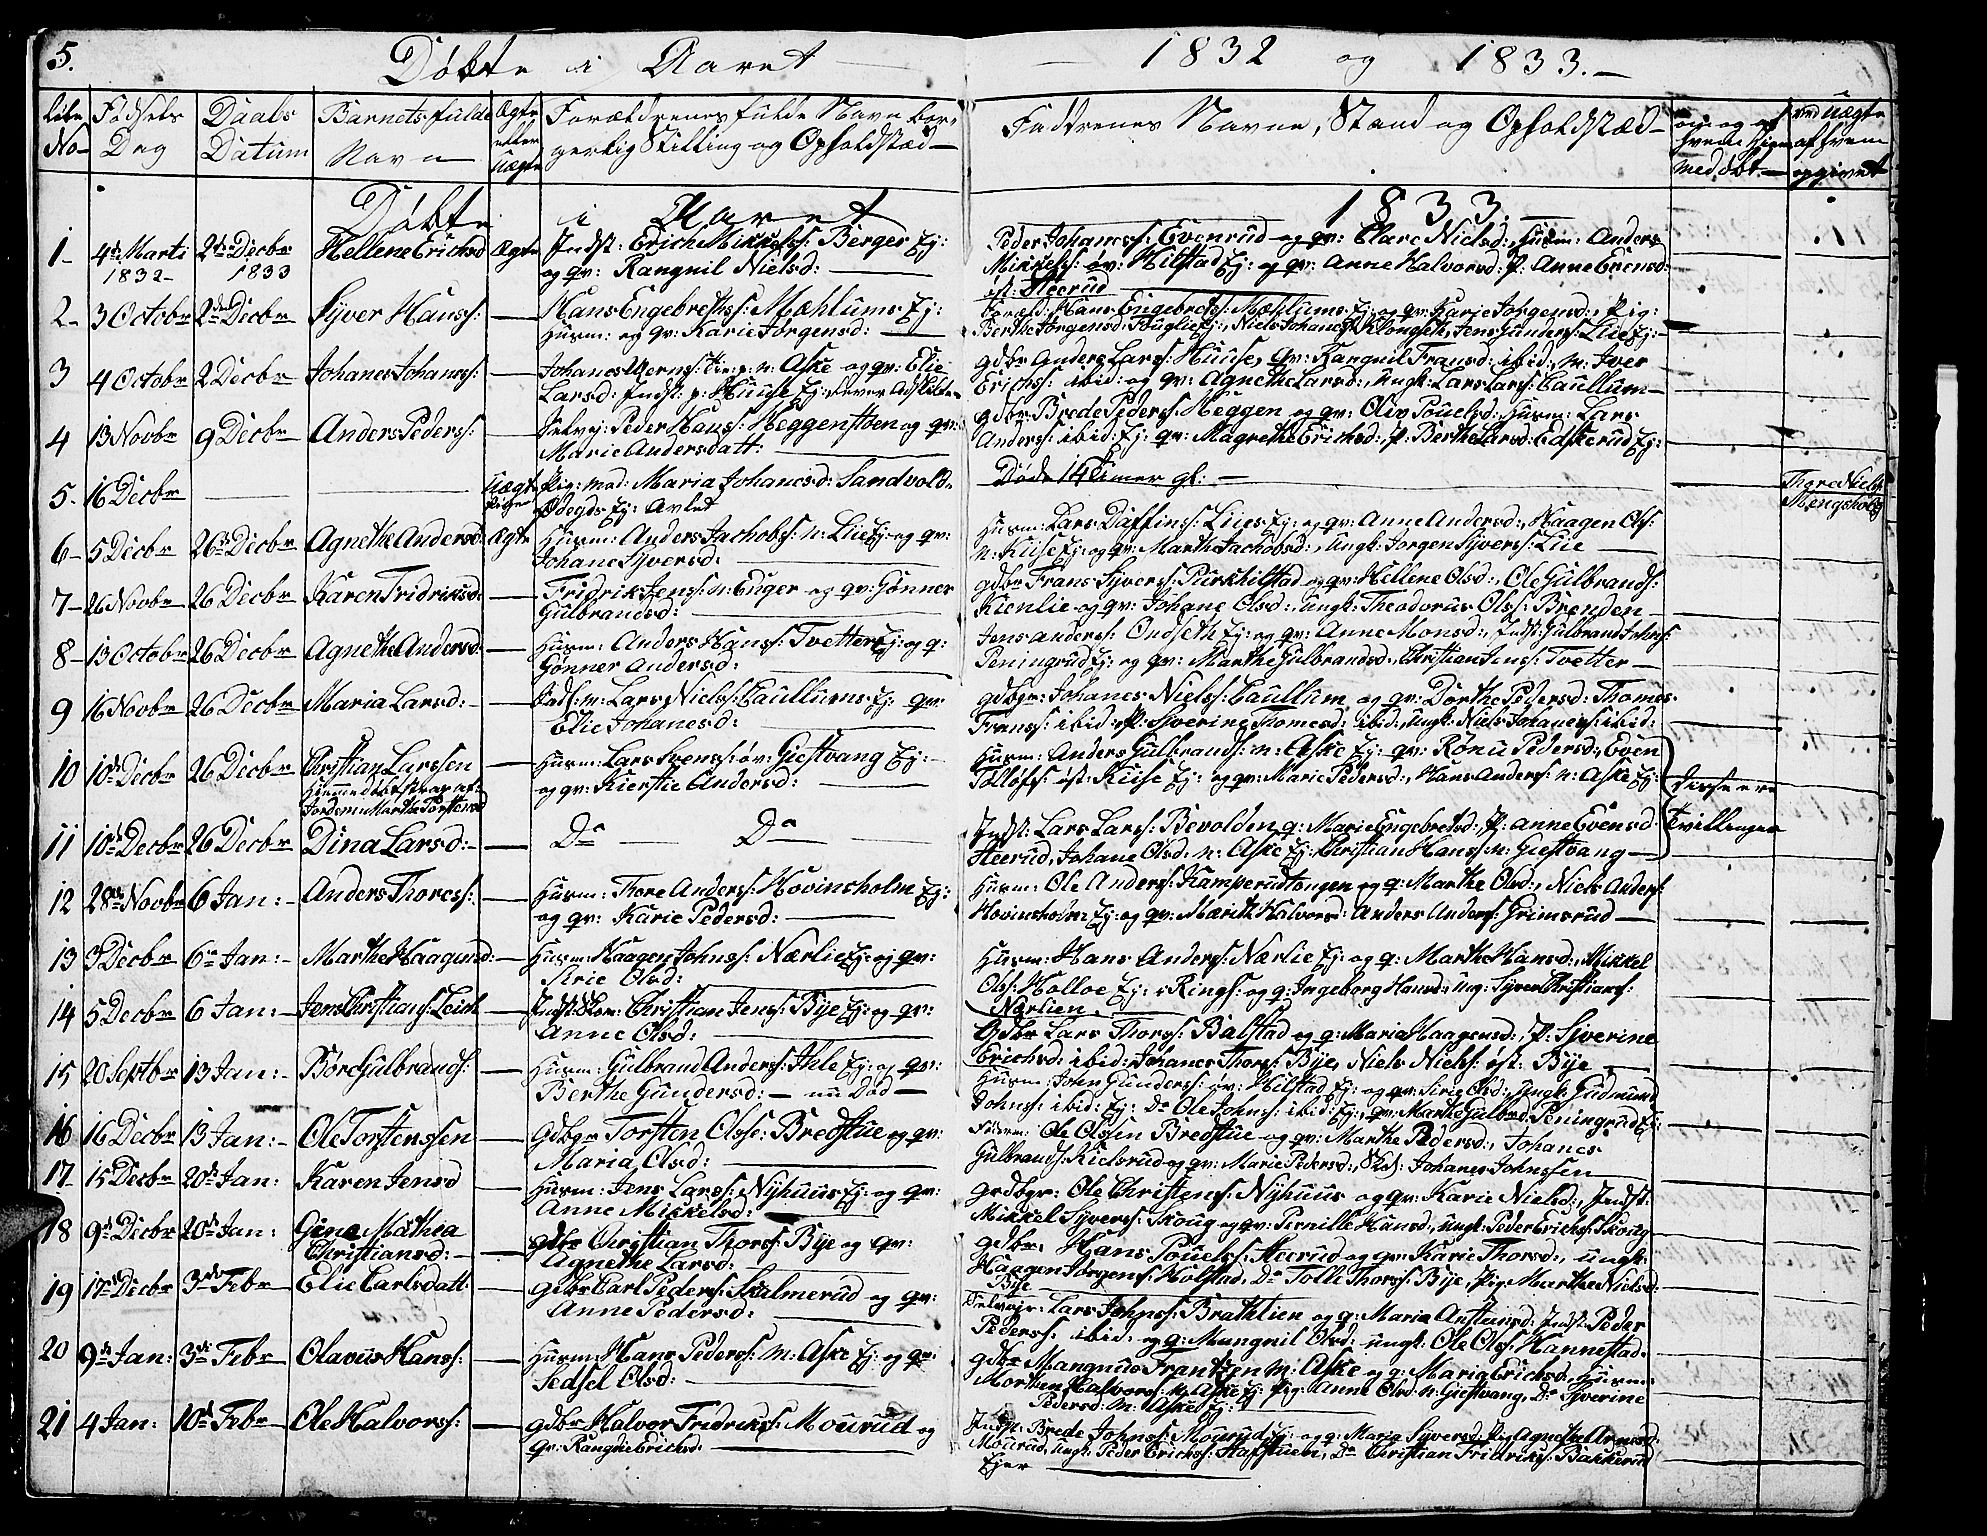 5.
Døbte i Aaret
1832 og 1833.
No
Fødsels Dag
Daabs Datum
Barnets fulde Navn
Ægte eller Uægte
Forældrenes fulde Navne bor-
gerlig Stilling og Opholdstæd
Faddrenes Navne, Stand og Opholdstæd
Døbte i Aaret 1833.
1 4de Marti 1832 2den Decbr 1833 Hellene Erichsd Ægte Indst: Erich Mikkelss: Berger Ej:
og qv: Rangnil Nielsd:
Peder Johaness: Evenrud og qv: Clare Nielsd:, Husm: Anders
Mikkelss: øv: Hilstad Ej: og qv: Anne Halvorsd: P: Anne Evensd:
Heerud
2 3 Octobr 2den Decbr Syver Hanss: Hans Engebrethss: Mæhlums Ej:
Husm: og qv: Karie Jørgensd:
Hans Engebrethss: Mæhlums Ej: og qv: Karie Jørgensd:, Pig:
3 4 Octobr 2 Decbr Johanes Johaness: n: Aske og qv: Elie
Larsd: Indst: p: Huuse Ej:
gdbr Anders Larss: Huuse, qv: Rangnil Fransd: ibid: Iver
Erichss: ibid: og qv: Agnethe Larsd:, Ungk: Lars Larss: Caullum
4 13 Novbr 9 Decbr Anders Pederss: Selvej: Peder Hanss: Heggenstøen og qv:
Marie Andersdatt:
gdbr Brede Pederss: Heggen og qv: Oliv Pouelsd: Husm: Lars
Anderss: ibid: Ej: qv: Magrethe Erichsd: P: Berthe Larsd: Edskerud Ej:
5 16 Decbr Uægte Pig: mod: Maria Johanesd: Sandvold
Ødegds Ej: Avlet
Døde 14 Timer gl:
Thore Niels
6 5 Decbr 26 Decbr Agnethe Andersd: Ægte Husm: Anders Jachobss: n: Lie Ej: og qv:
Johane Syversd:
Husm: Lars Daffinss: Lies Ej: og qv: Anne Andersd:, Haagen Ols:
n: Kiise Ej: og qv: Marthe Jachobsd:, Ungk: Jørgen Syverss: Lie
7 26 Novbr 26 Decbr Karen Fridriksd: Fridrik Jenss: n: Enger og qv: Gønner
Gulbrandsd:
gdbr Frans Syverss: Purkhilstad og qv: Hellene Olsd:, Ole Gulbrands:
Kienlie og qv: Johane Olsd:, Ungk: Theodorus Olss: Brenden
8 13 Octobr 26 Decbr Agnethe Andersd: Husm: Anders Hanss: Tvetter Ej: og q:
Gønner Andersd:
Jens Anderss: Ondseth Ej: og qv: Anne Monsd:, Indst: Gulbrand Johns:
Peningrud Ej: og qv: Marthe Gulbrandsd:, Christian Jenss: Tvetter
9 16 Novbr 26 Decbr Maria Larsd: Lars Nielss: Caullums Ej: qv:
Elie Johanesd:
gdbgr: Johanes Nielss: Caullum og qv: Dorthe Pedersd: Thomes
Franss: ibid: P: Syverine Thomesd: ibid: Ungk: Niels Johaness: ibid:
10 10de Decbr 26 Decbr Christian Larssen
Hiemedøbt
Husm: Lars Svenss: øv: Giestvang Ej:
og qv: Kierstie Andersd:
Husm: Anders Gulbrands: n: Aske Ej: qv: Rønu Pedersd:, Even
Tolløfss: øst: Kiise Ej: og qv: Marie Pedersd:, Hans Anderss: n: Aske Ej:
Disse ere
Tvillinger
11 10de Decbr 26 Decbr Dina Larsd: Do Do
Indst: Lars Larss: Bevolden q: Marie Engebretsd:, P: Anne Evensd:
Heerud, Johane Olsd: n: Aske Ej: Christian Hanss: n: Giestvang
12 28de Novbr 6 Jan: Anders Thoress: Husm: Thore Anderss: Hovinsholm Ej:
og qv: Karie Pedersd:
Husm: Ole Anderss: Kamperudtongen og q: Marthe Olsd:, Niels Anders:
Hovinsholm Ej: og qv: Marith Halvorsd: Anders Anders: Grimsrud
13 3 Decbr 6 Jan: Marthe Haagensd: Husm: Haagen Johnss: Nærlie Ej: og qv:
Sirie Olsd:
Husm: Hans Anders: Nærlie Ej: og q: Marthe Hansd:, Mikkel
Olss: Holloe Ej: Rings: og q: Ingeborg Hansd: Ung: Syver Christians:
Nærlien.
14 5 Decbr 6 Jan: Jens Christians: Christian Jenss: Bye Ej: og qv:
Anne Olsd:
Gdbr Lars Thorss: Balstad og q: Maria Haagensd:, P: Syverine
Erichsd: ibid: Johanes Thors: Bye, Niels Niels: øst: Bye
15 20 Septbr 13 Jan: Børe Gulbrands: Husm: Gulbrand Anders: Ihle Ej: og qv:
Berthe Gundersd: nu Død
Husm: John Gunderss: øv: Hilstad Ej: og qv: Sirie Olsd:, Ungk: Gudmund
Johns: ibid: Ej: Do Ole Johns: ibid: Ej:, qv: Marthe Gulbrd: Peningrud Ej:
16 16 Decbr 13 Jan: Ole Torstenssen Gdbgr Torsten Olss: Bredstue og qv:
Maria Olsd:
Ole Olssen Bredstue og qv: Marthe Pedersd:, Johanes
Gulbrands: Kielsrud og qv: Marie Pedersd:, Johanes Johnssen
17 15 Decbr 20de Jan: Karen Jensd Husm: Jens Larss: Nyhuus Ej: og qv:
Anne Mickelsd:
grdbgr: Ole Christens: Nyhuus og qv: Karie Nielsd:, Indst:
Mikkel Syverss: Skoug og qv: Pernille Hansd:, Ungk: Peder Erichs: Skoug
18 9de Decbr 20de Jan: Gine Mathea
Christiansd:
gdbr Christian Thorss: Bye og qv:
Agnethe Larsd:
gdbr, Hans Pouelss: Heerud og qv: Karie Thorsd:, ungk:
Haagen Jørgens: Holstad, Do Tolle Thorss: Bye, Pig Marthe Nielsd:
Bye
19 17de Decbr 3de Febr Elie Carlsdatt: gdbr Carl Peders: Skulmerud og qv:
Anne Pedersd:
Selvejr: Lars Johnss: Brathlien og q: Maria Anstensd: Indst: Peder
Pederss: ibid: og q: Mangnil Olsd: ungk: Ole Ols: Hannestad.
20 9de Jan: 3de Febr Olavus Hanss: Husm: Hans Pederss: n: Aske Ej: og qv:
Sedsel Olsd:
gdbr Mangnus Frantzen n: Aske og q: Maria Erichsd, Husm:
Morthen Halvors: n: Aske Ej: Pig: Anne Olsd: n: Giestvang, Do Syverine
Pedersd: n: Aske Ej:
21 4 Jan: 10de Febr Ole Halvorss: gdbr Halvor Fridrikss: Mourud og
qv: Rangdie Erichsd:
Brede Johnss: Mourud Ej: og q: Maria Syversd: Pig Agnethe
Mourud, Ungk: Peder Erichss: Hafstuen, Do Christian Fridrikss: Bakkerud
Ejer